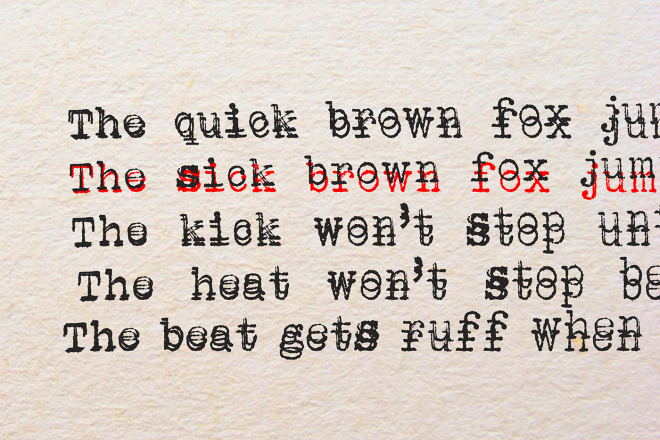 The quick brown fox jum
The sick brown fox jum
The kick won't stop unt
The heat won't stop be
The beat gets ruff when